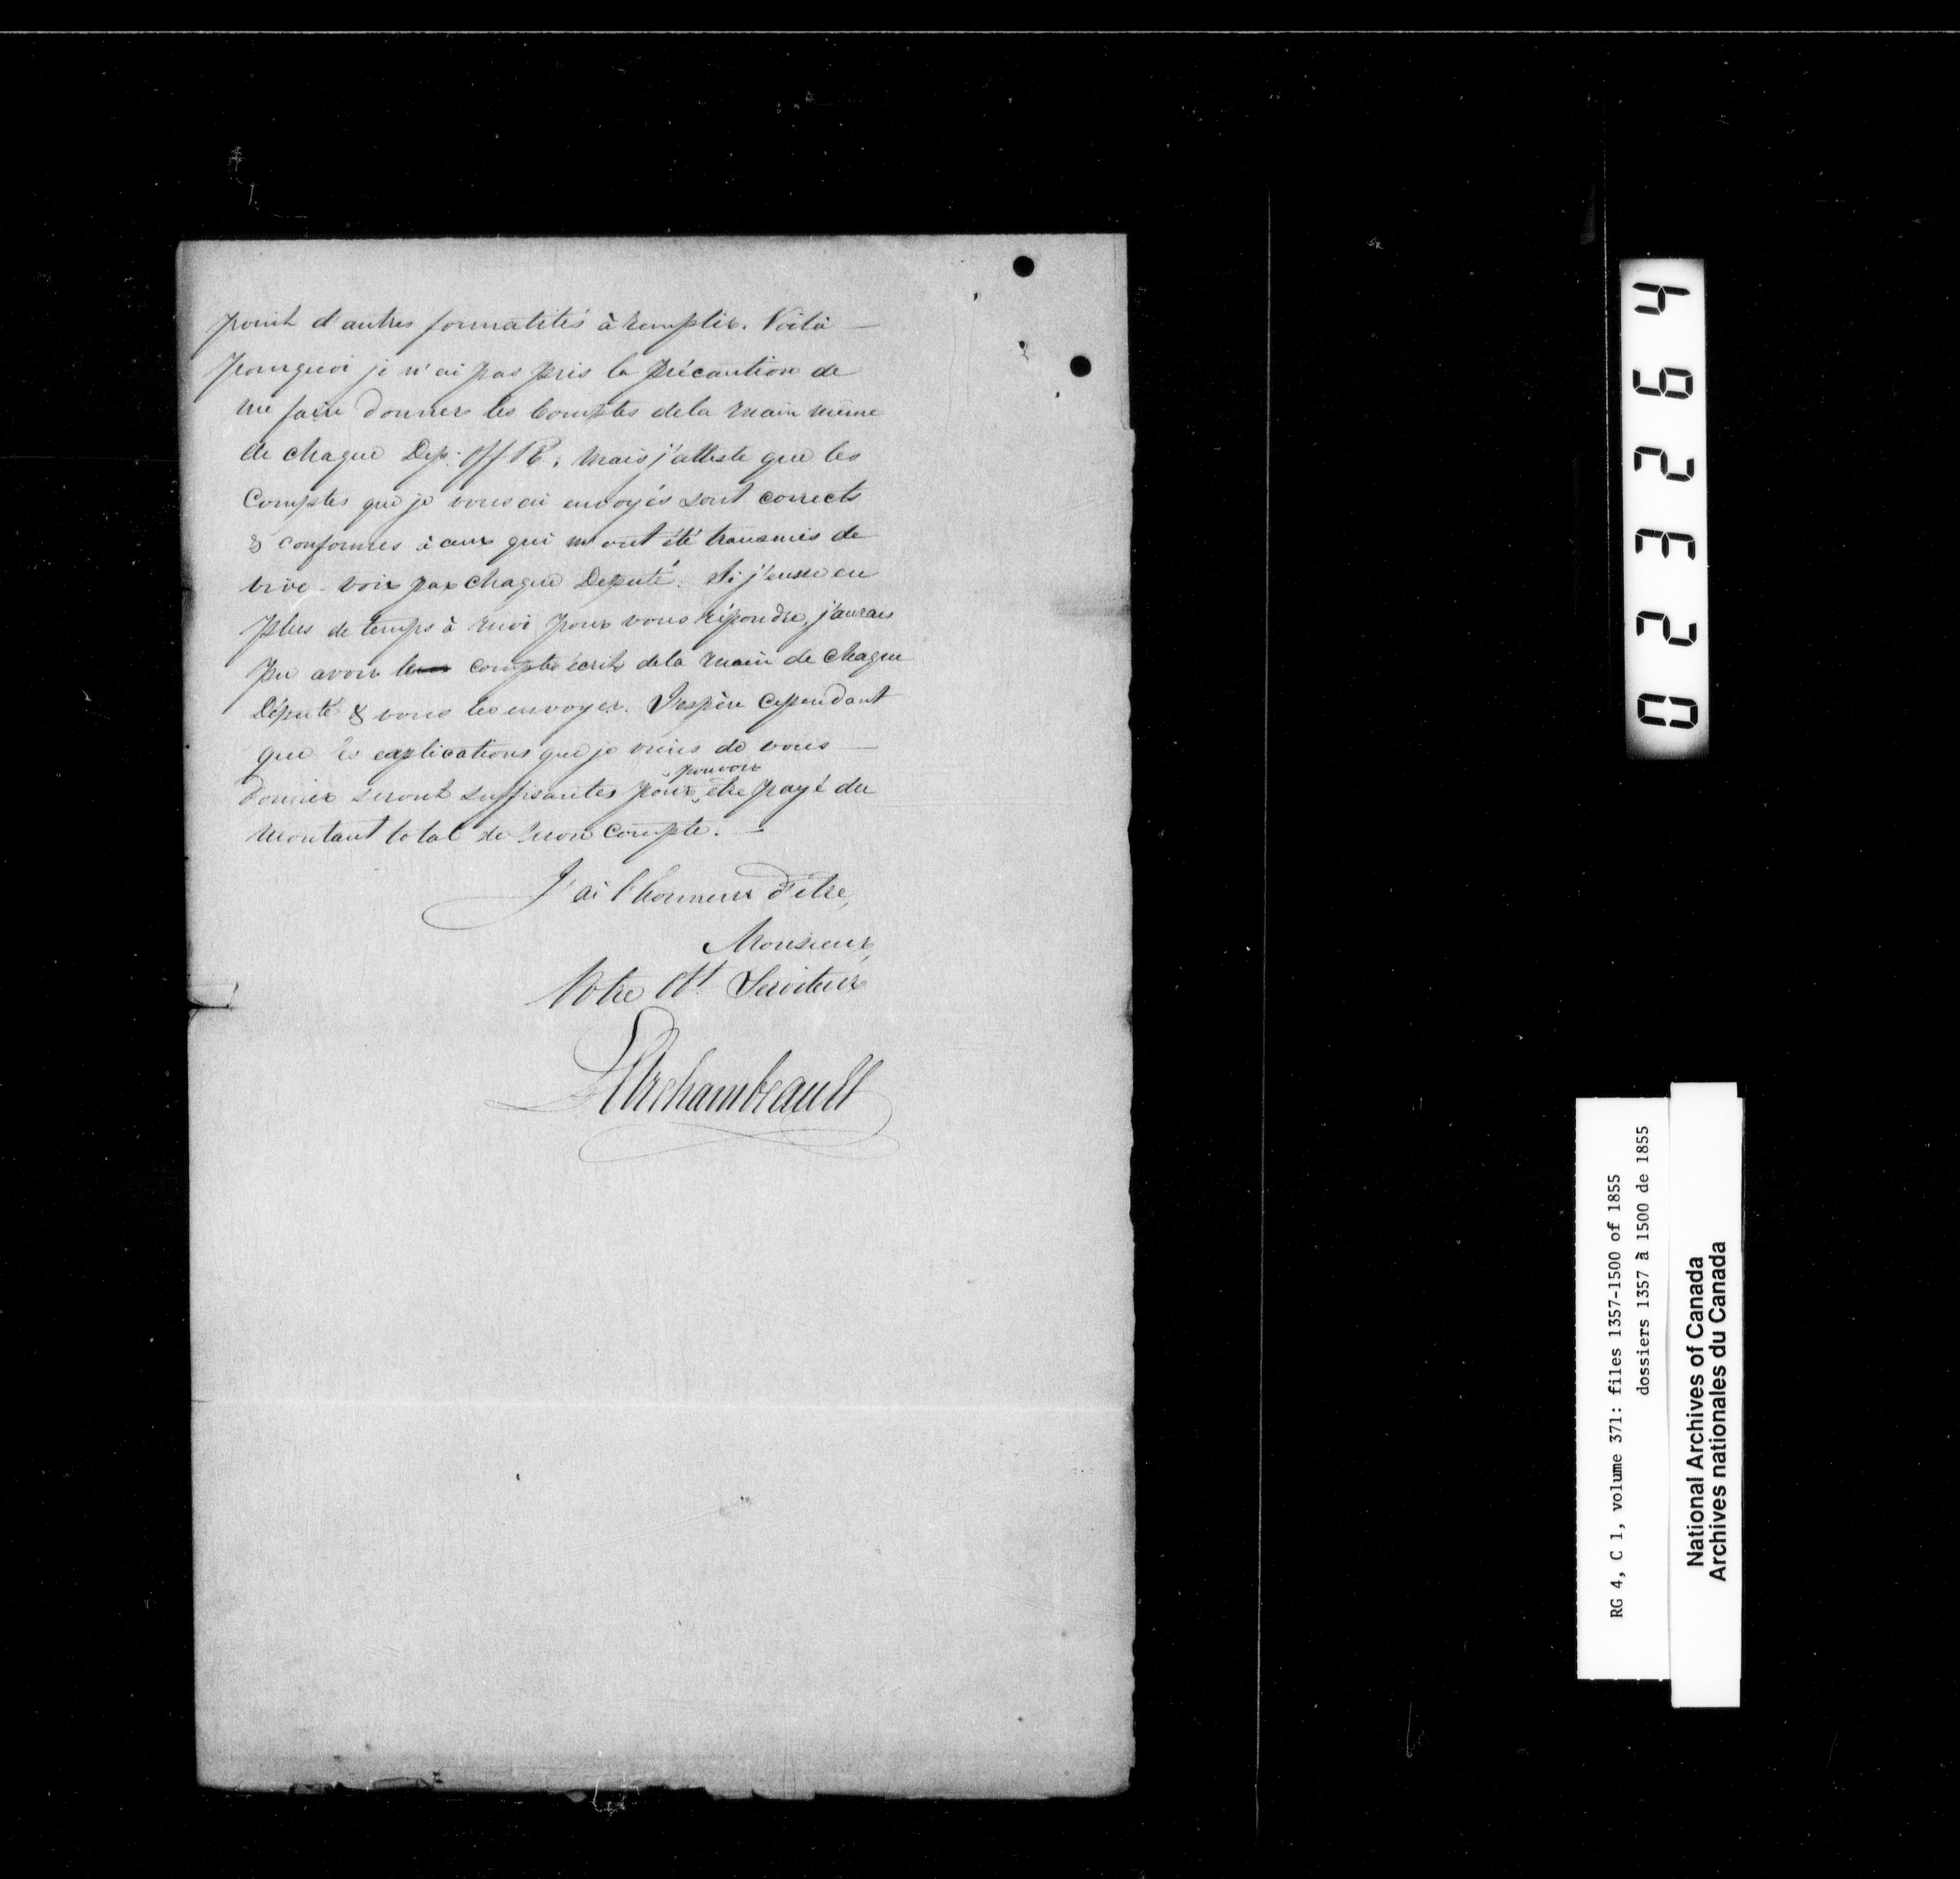 point d'autres formalités à remplir. Voilà —
pourquoi je n'ai pas pris la précaution de
me faire donner les Comptes de la main même
de chaque Dep: Off. R.; mais j'atteste que les
Comptes que je vous ai envoyés sont corrects
& conformes à ceux qui m'ont été transmis de
vive voix par chaque Deputé. Si j'eusse eu
plus de temps à moi pour vous répondre, j'aurais
pu avoir compte écrit de la main de chaque
Député & vous les envoyer. J'espère cependant
que les explications que je viens de vous —
donner seront suffisantes pour pouvoir être payé du
montant total de mon compte. —
J'ai l'honneur d'être,
Monsieur,
Votre Obt. Serviteur
L Archambeault
023294
RG 4, C 1, volume 371: files 1357-1500 of 1855
dossiers 1357 à 1500 de 1855
National Archives of Canada
Archives nationales du Canada